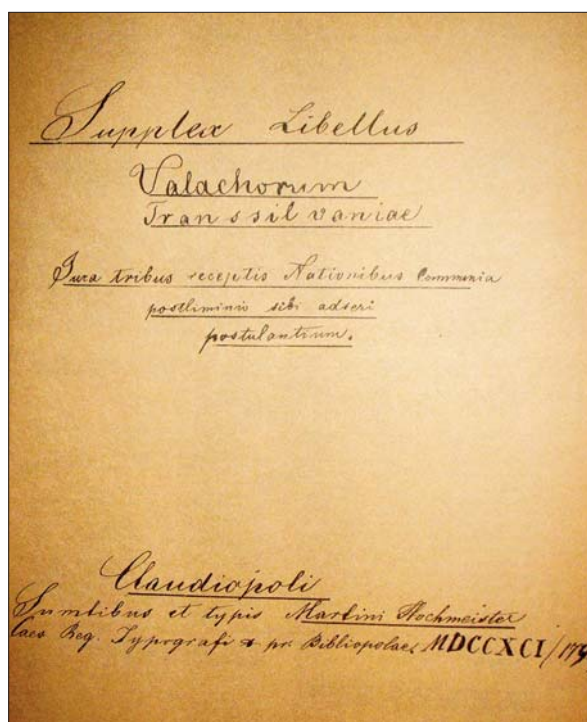 Supplex Libellus
Valachorum
Transsilvaniae
Jura tribus receptis Nationibus Communia
postliminio sibi adseri
postulantium.
Claudiopoli
Sumtibus et typis Martini Hochmeister
Caes Reg. Typografi & pr. Bibliopolae, MDCCXCI/179